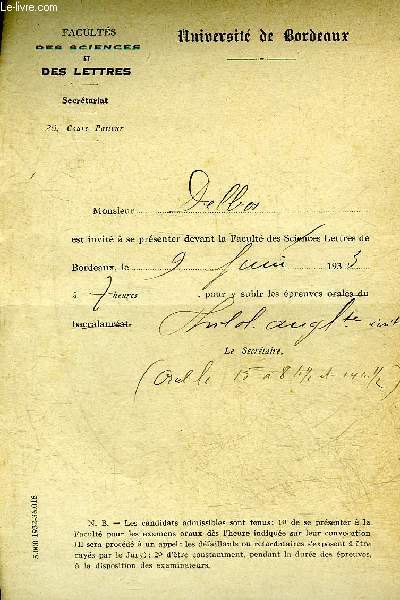 Le-livre.com
FACULTÉS
DES SCIENCES
ET
DES LETTRES
Université de Bordeaux
Secrétariat
20, Cours Pasteur
Monsieur Delbos
est invité à se présenter devant la Faculté des Sciences Lettres de
Bordeaux, le 9 Juin 1933
à 7 heures , pour y subir les épreuves orales du
baccalauréat.
Le Secrétaire,
15 à 8
N. B. — Les candidats admissibles sont tenus : 1º de se présenter à la
Faculté pour les examens oraux dès l'heure indiquée sur leur convocation
(il sera procédé à un appel : les défaillants ou retardataires s'exposent à être
rayés par le Jury) ; 2º d'être constamment, pendant la durée des épreuves,
à la disposition des examinateurs.